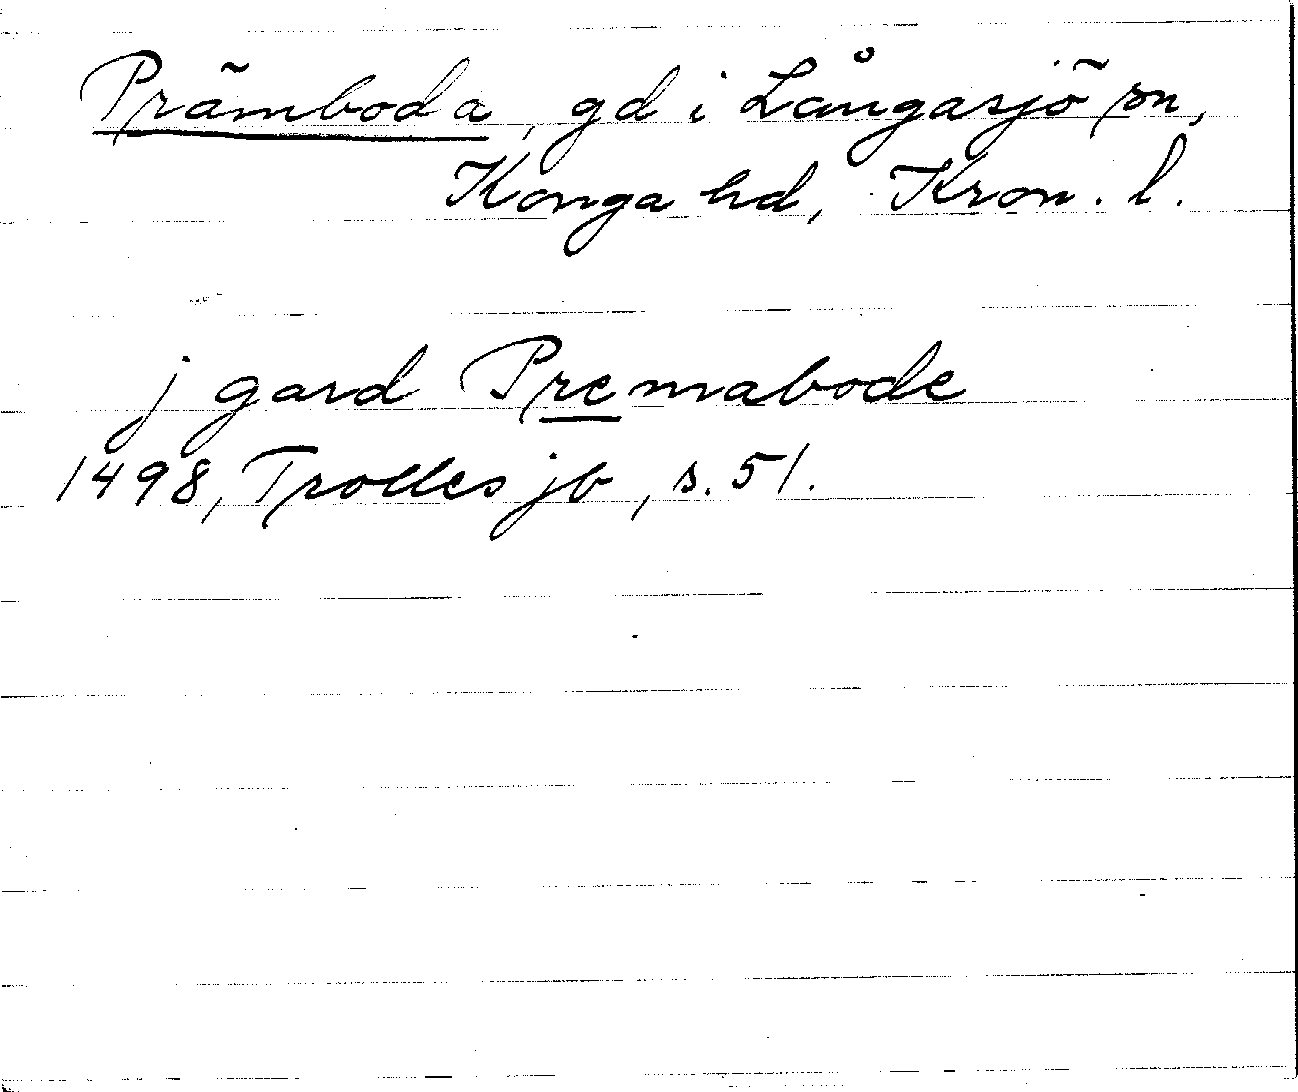 Prämboda, gd i Långasjö sn,
Konga hd, Kron. l.
j gard Premabode
1498, Trolles jb, s. 51.